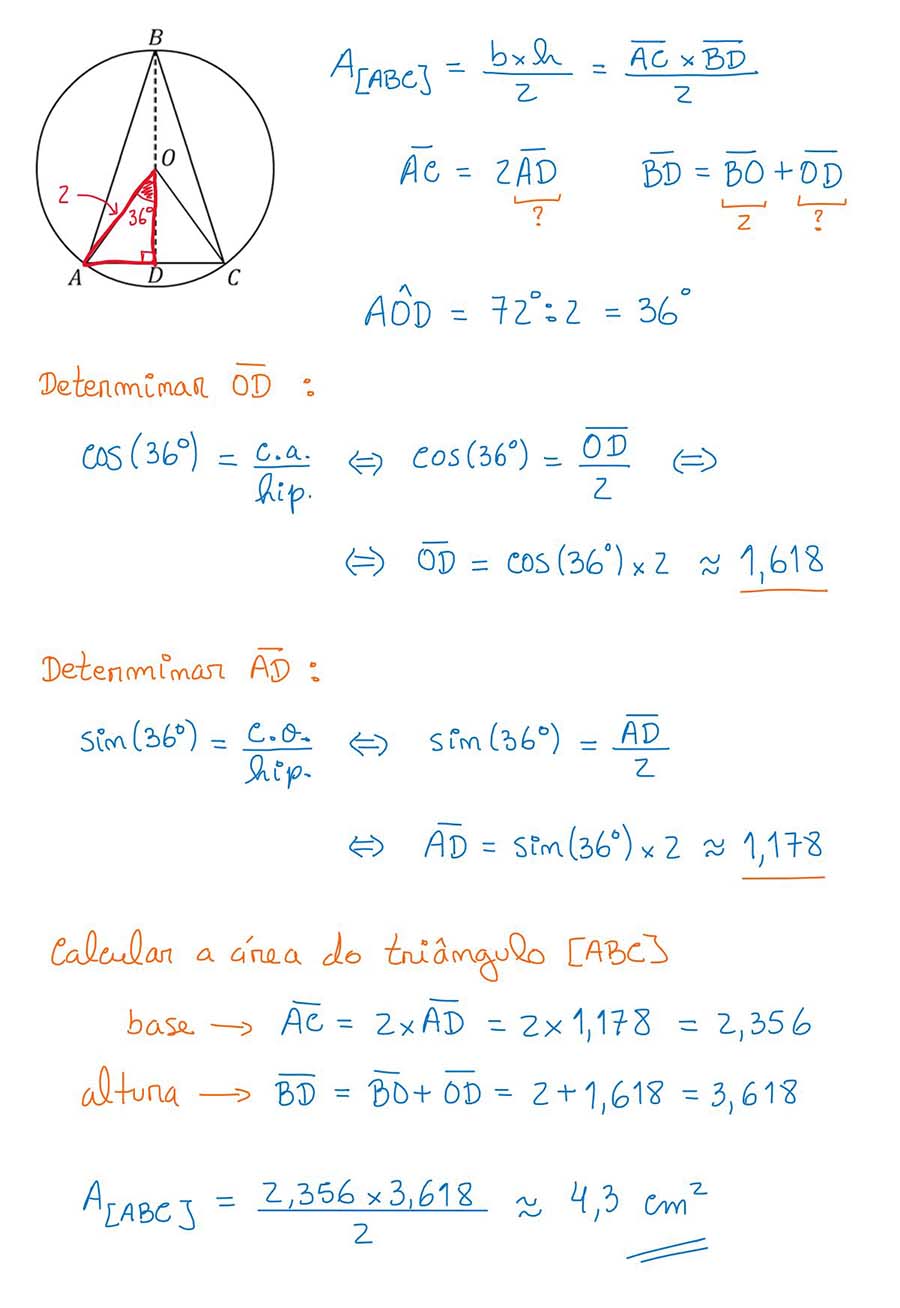 B
O
2
36°
A
D
C
A[ABC] = b×h/2 = A̅C̅ × B̅D̅/2
A̅C̅ = 2A̅D̅
?
B̅D̅ = B̅O̅ + O̅D̅
2 ?
AÔD = 72° : 2 = 36°
Determinar O̅D̅ :
cos(36°) = c.a./hip. ⇔ cos(36°) = O̅D̅/2 ⇔
⇔ O̅D̅ = cos(36°) × 2 ≈ 1,618
Determinar A̅D̅ :
sin(36°) = c.o./hip. ⇔ sin(36°) = A̅D̅/2
⇔ A̅D̅ = sin(36°) × 2 ≈ 1,178
Calcular a área do triângulo [ABC]
base → A̅C̅ = 2×A̅D̅ = 2×1,178 = 2,356
altura → B̅D̅ = B̅O̅ + O̅D̅ = 2+1,618 = 3,618
A[ABC] = 2,356 × 3,618/2 ≈ 4,3 cm²